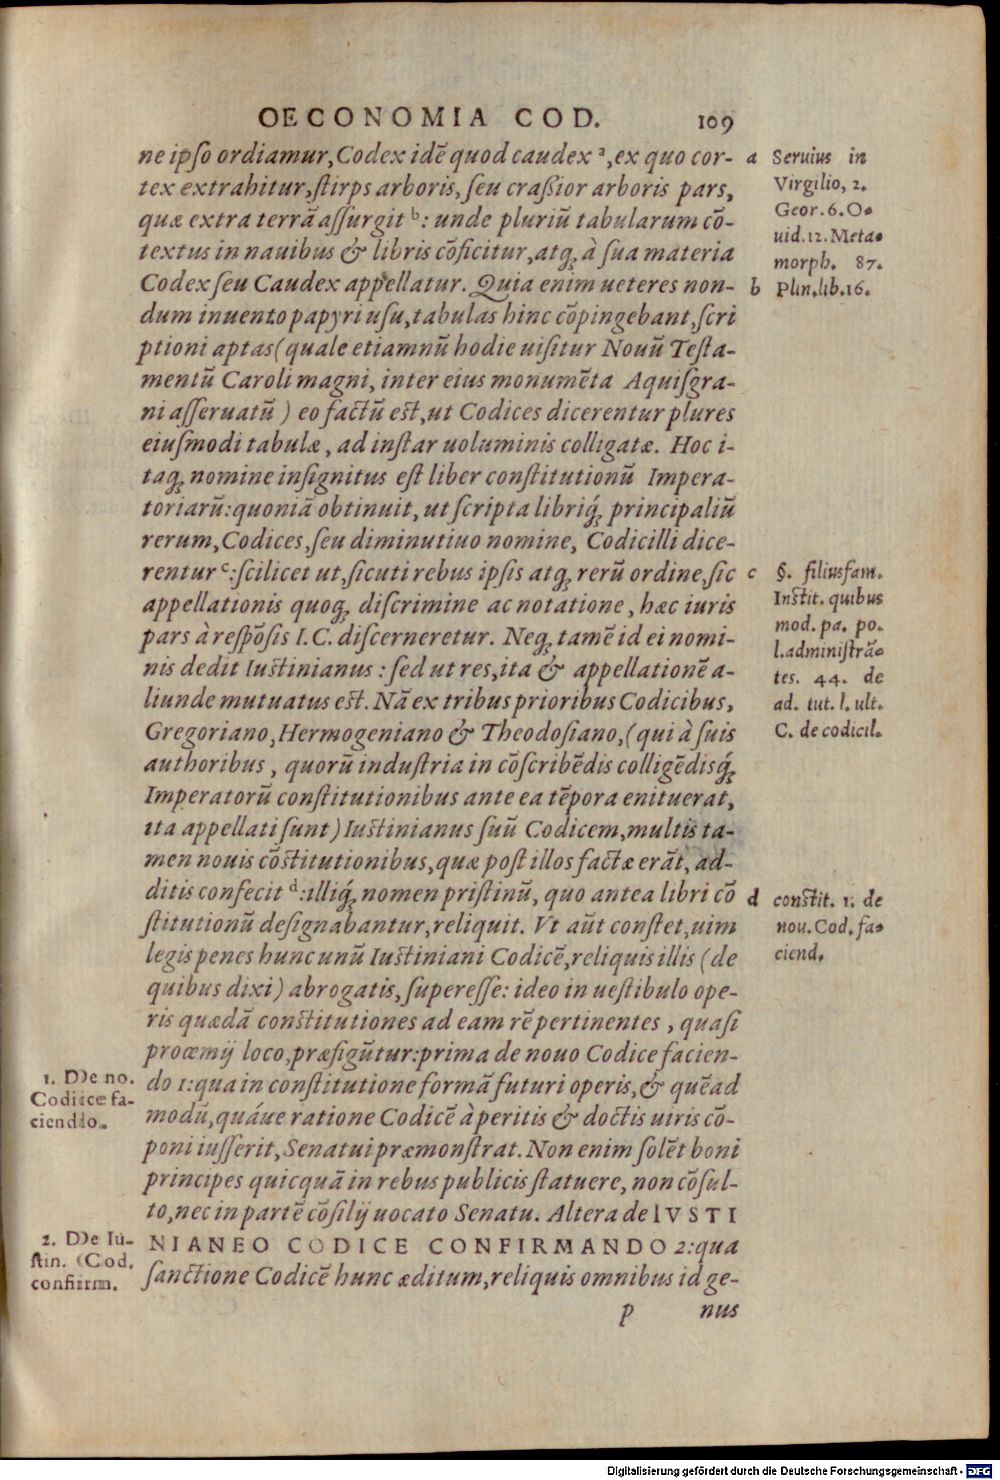 OECONOMIA COD. 109
ne ipso ordiamur, Codex idē quod caudex ª, ex quo cor-
tex extrahitur, stirps arboris, seu craßior arboris pars,
quæ extra terrā assurgit ᵇ: unde pluriū tabularum cō-
textus in nauibus & libris cōficitur, atq; à sua materia
Codex seu Caudex appellatur. Quia enim ueteres non-
dum inuento papyri usu, tabulas hinc cōpingebant, scri
ptioni aptas (quale etiamnū hodie uisitur Nouū Testa-
mentū Caroli magni, inter eius monumēta Aquisgra-
ni asseruatū) eo factū est, ut Codices dicerentur plures
eiusmodi tabulæ, ad instar uoluminis colligatæ. Hoc i-
taq; nomine insignitus est liber constitutionū Impera-
toriarū: quoniā obtinuit, ut scripta libriq́; principaliū
rerum, Codices, seu diminutiuo nomine, Codicilli dice-
rentur ᶜ: scilicet ut, sicuti rebus ipsis atq; rerū ordine, sic
appellationis quoq; discrimine ac notatione, hæc iuris
pars à respōsis I.C. discerneretur. Neq; tamē id ei nomi-
nis dedit Iustinianus: sed ut res, ita & appellationē a-
liunde mutuatus est. Nā ex tribus prioribus Codicibus,
Gregoriano, Hermogeniano & Theodosiano, (qui à suis
authoribus, quorū industria in cōscribēdis colligēdisq́;
Imperatorū constitutionibus ante ea tēpora enituerat,
ita appellati sunt) Iustinianus suū Codicem, multis ta-
men nouis cōstitutionibus, quæ post illos factæ erāt, ad-
ditis confecit ᵈ: illiq́; nomen pristinū, quo antea libri cō
stitutionū designabantur, reliquit. Vt aūt constet, uim
legis penes hunc unū Iustiniani Codicē, reliquis illis (de
quibus dixi) abrogatis, superesse: ideo in uestibulo ope-
ris quædā constitutiones ad eam rē pertinentes, quasi
procemij loco, præfigūtur: prima de nouo Codice facien-
do 1: qua in constitutione formā futuri operis, & quēad
modū, quáue ratione Codicē à peritis & doctis uiris cō-
poni iusserit, Senatui præmonstrat. Non enim solēt boni
principes quicquā in rebus publicis statuere, non cōsul-
to, nec in partē cōsilij uocato Senatu. Altera de IVSTI
NIANEO CODICE CONFIRMANDO 2: qua
sanctione Codicē hunc æditum, reliquis omnibus id ge-
p nus
a Seruius in
Virgilio, 2.
Geor. 6. O-
uid. 12. Meta-
morph. 87.
b Plin. lib. 16.
c §. filiusfam.
Instit. quibus
mod. pa. po.
l. administrā-
tes. 44. de
ad. tut. l. ult.
C. de codicil.
d constit. 1. de
nou. Cod. fa-
ciend.
1. De no.
Codice fa-
ciendo.
2. De Iu-
stin. Cod.
confirm.
Digitalisierung gefördert durch die Deutsche Forschungsgemeinschaft - DFG